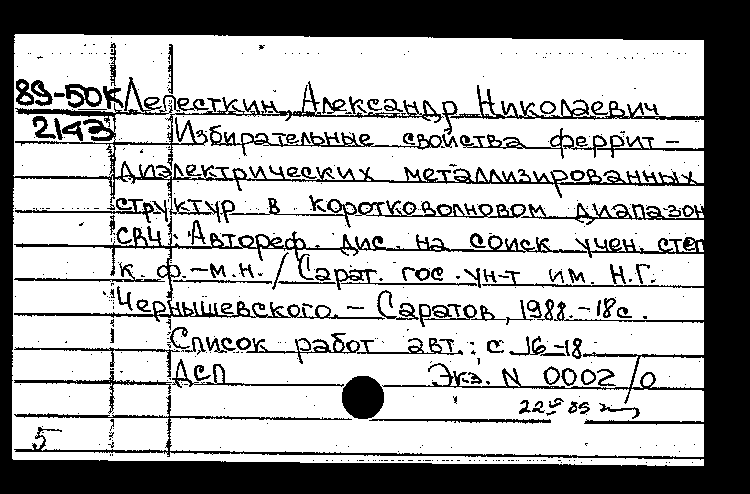 89-50К Лепесткин, Александр Николаевич
2143 Избирательные свойства феррит-
диэлектрических металлизированных
структур в коротковолновом диапазон
СВЧ: Автореф. дис. на соиск учен. степ
к. ф.-м.н. / Сарат. гос. ун-т им. Н.Г.
Чернышевского. - Саратов, 1988. - 18с.
Список работ авт.: с. 16-18
ДСП Экз. N 0002/0
5